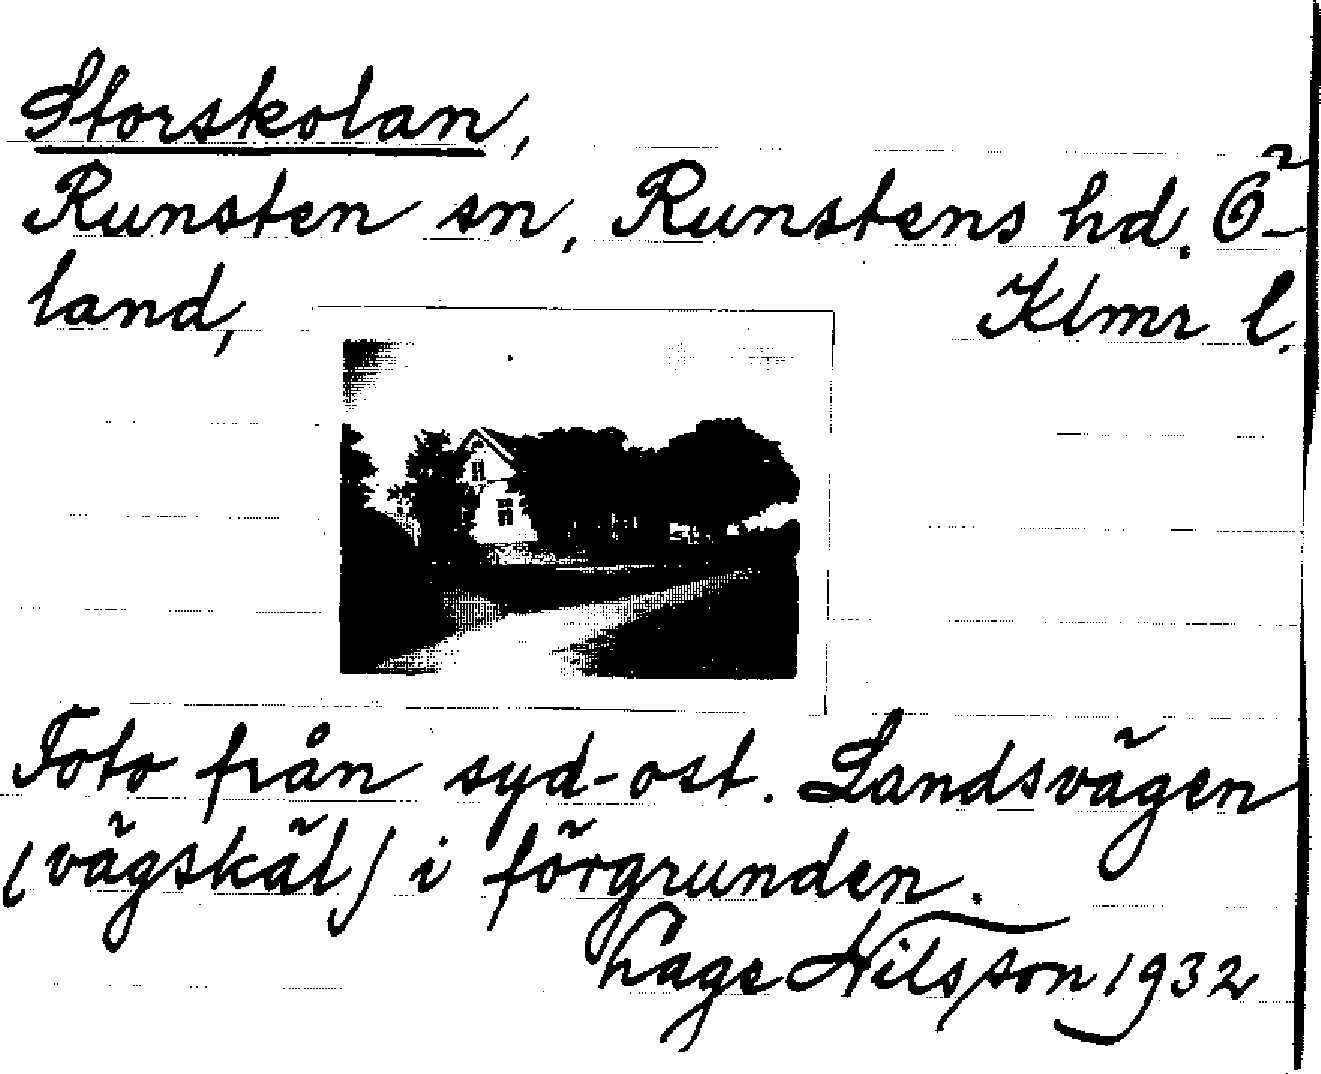 Storskolan,
Runsten sn, Runstens hd. Ö-
land, Klmr l.
Foto från syd-ost. Landsvägen
(vägskäl) i förgrunden.
Lage Nilsson 1932